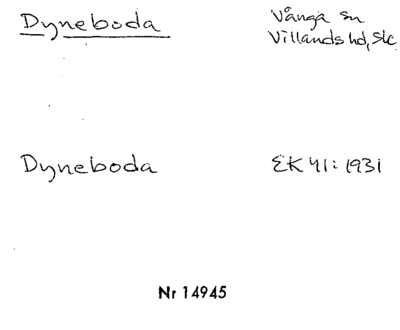 Dyneboda
Vånga sn
Villands hd, Skc
Dyneboda
EK 41: 1931
Nr 14945